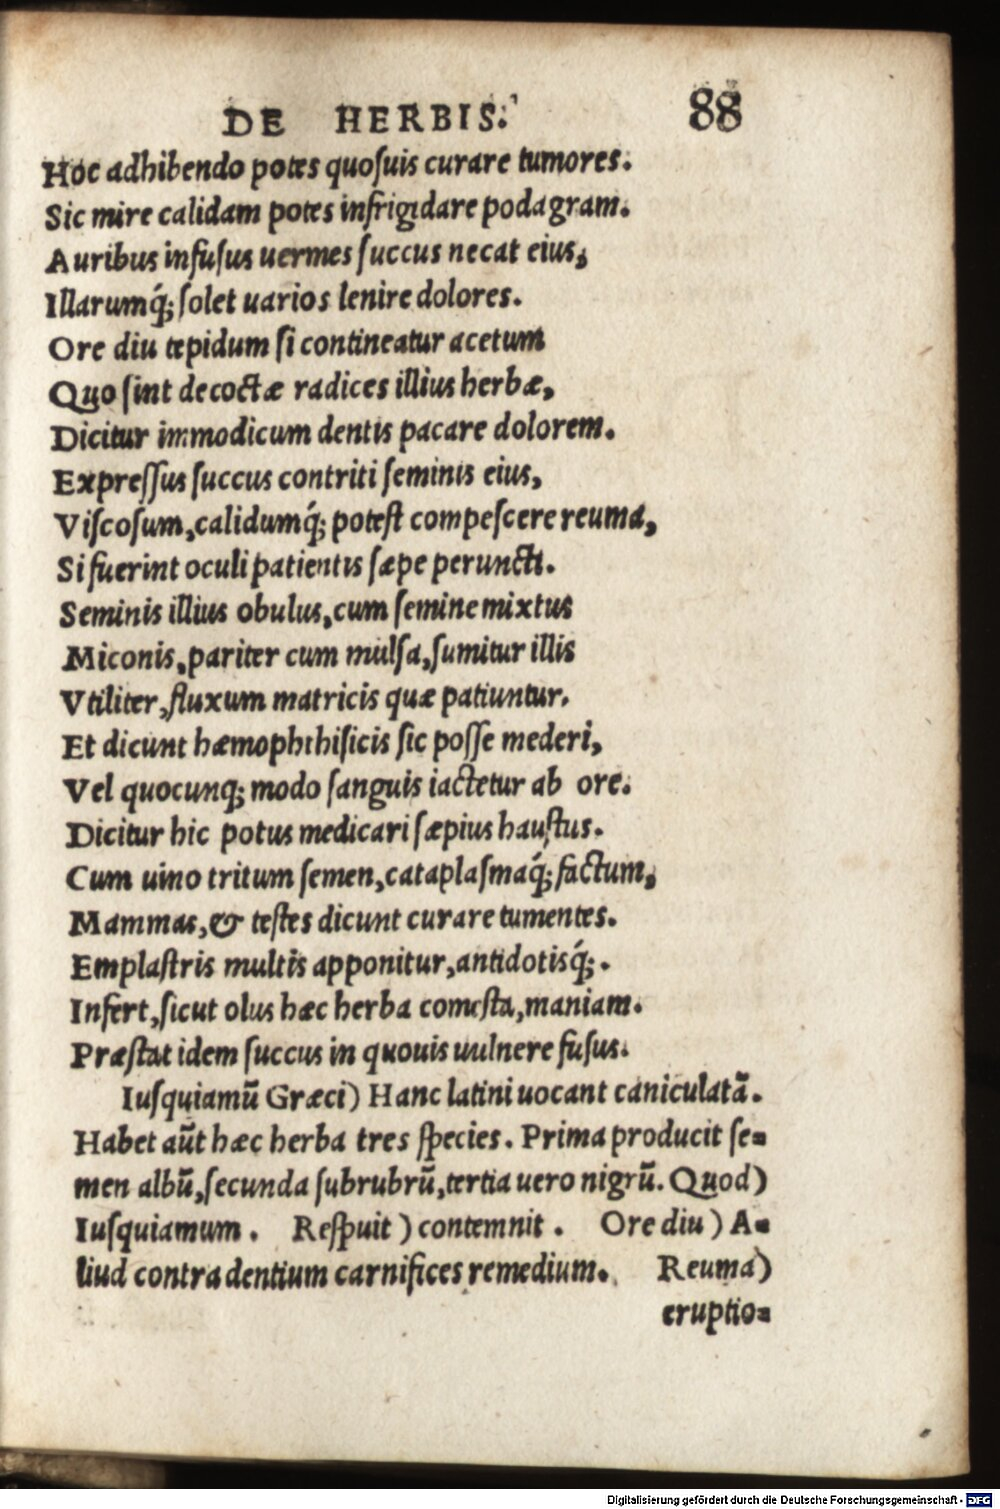 DE HERBIS. 88
Hoc adhibendo potes quoſuis curare tumores.
Sic mire calidam potes infrigidare podagram.
Auribus infuſus uermes ſuccus necat eius,
Illarumq́; ſolet uarios lenire dolores.
Ore diu tepidum ſi contineatur acetum
Quo ſint decoctæ radices illius herbæ,
Dicitur immodicum dentis pacare dolorem.
Expreſſus ſuccus contriti ſeminis eius,
Viſcoſum, calidumq́; poteſt compeſcere reuma,
Si fuerint oculi patientis ſæpe peruncti.
Seminis illius obulus, cum ſemine mixtus
Miconis, pariter cum mulſa, ſumitur illis
Vtiliter, fluxum matricis quæ patiuntur.
Et dicunt hæmophthiſicis ſic poſſe mederi,
Vel quocunq; modo ſanguis iactetur ab ore.
Dicitur hic potus medicari ſæpius hauſtus.
Cum uino tritum ſemen, cataplaſmaq́; factum,
Mammas, & teſtes dicunt curare tumentes.
Emplaſtris multis apponitur, antidotisq́;.
Infert, ſicut olus hæc herba comeſta, maniam.
Præſtat idem ſuccus in quouis uulnere fuſus.
Iuſquiamū Græci) Hanc latini uocant caniculatã.
Habet aūt hæc herba tres ſpecies. Prima producit ſe-
men albū, ſecunda ſubrubrū, tertia uero nigrū. Quod)
Iuſquiamum. Reſpuit) contemnit. Ore diu) A-
liud contra dentium carnifices remedium. Reuma)
eruptio-
Digitalisierung gefördert durch die Deutsche Forschungsgemeinschaft - DFG